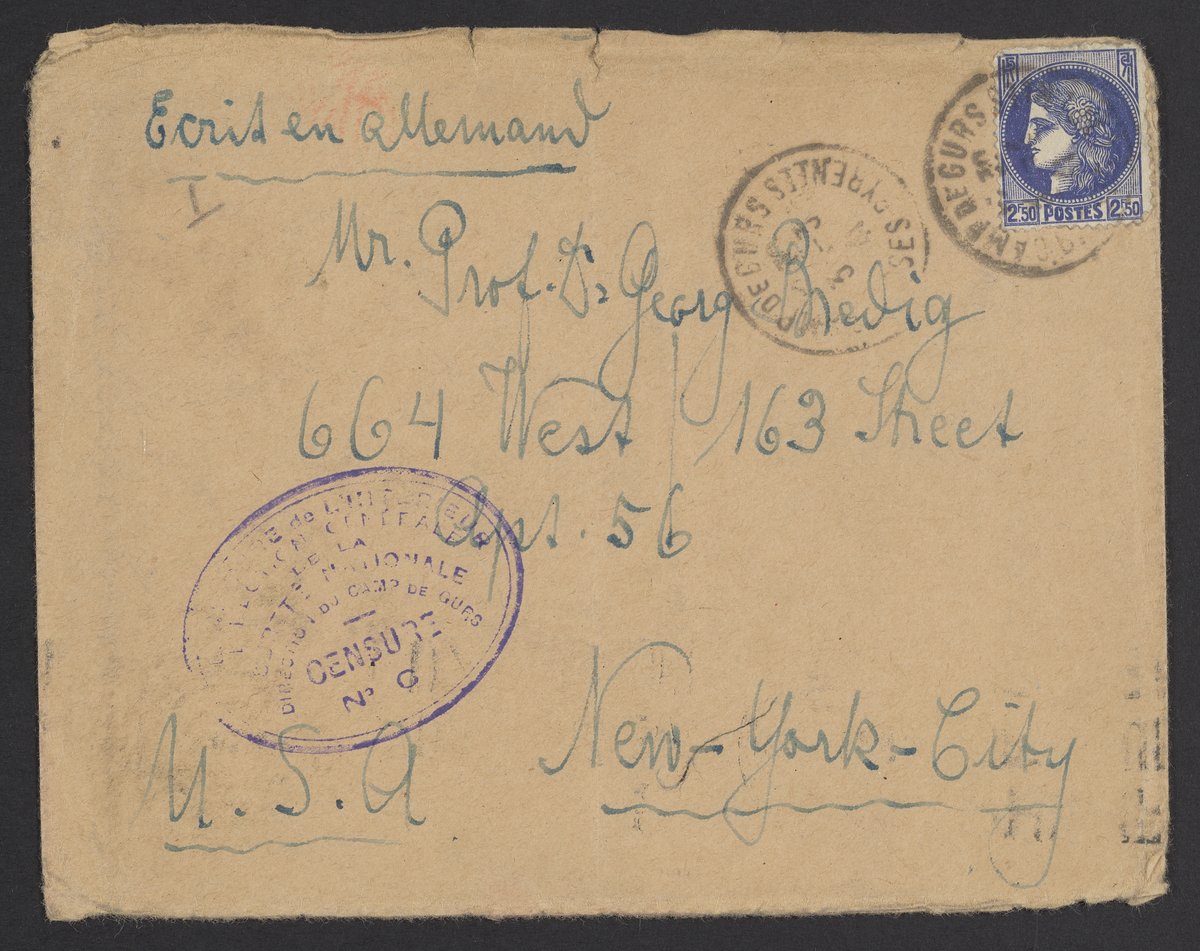 Ecrit en allemand
I
2.50 POSTES 2.50
CAMP DE GURS
DE GURS
SES-PYRENEES
Mr. Prof. Dr Georg Bredig
664 West 163 Street
Apt. 56
de L'INTERIEUR
GENERALE
DE LA
NATIONALE
DIRECTION DU CAMP DE GURS
CENSURE
U. S. A
New-York-City